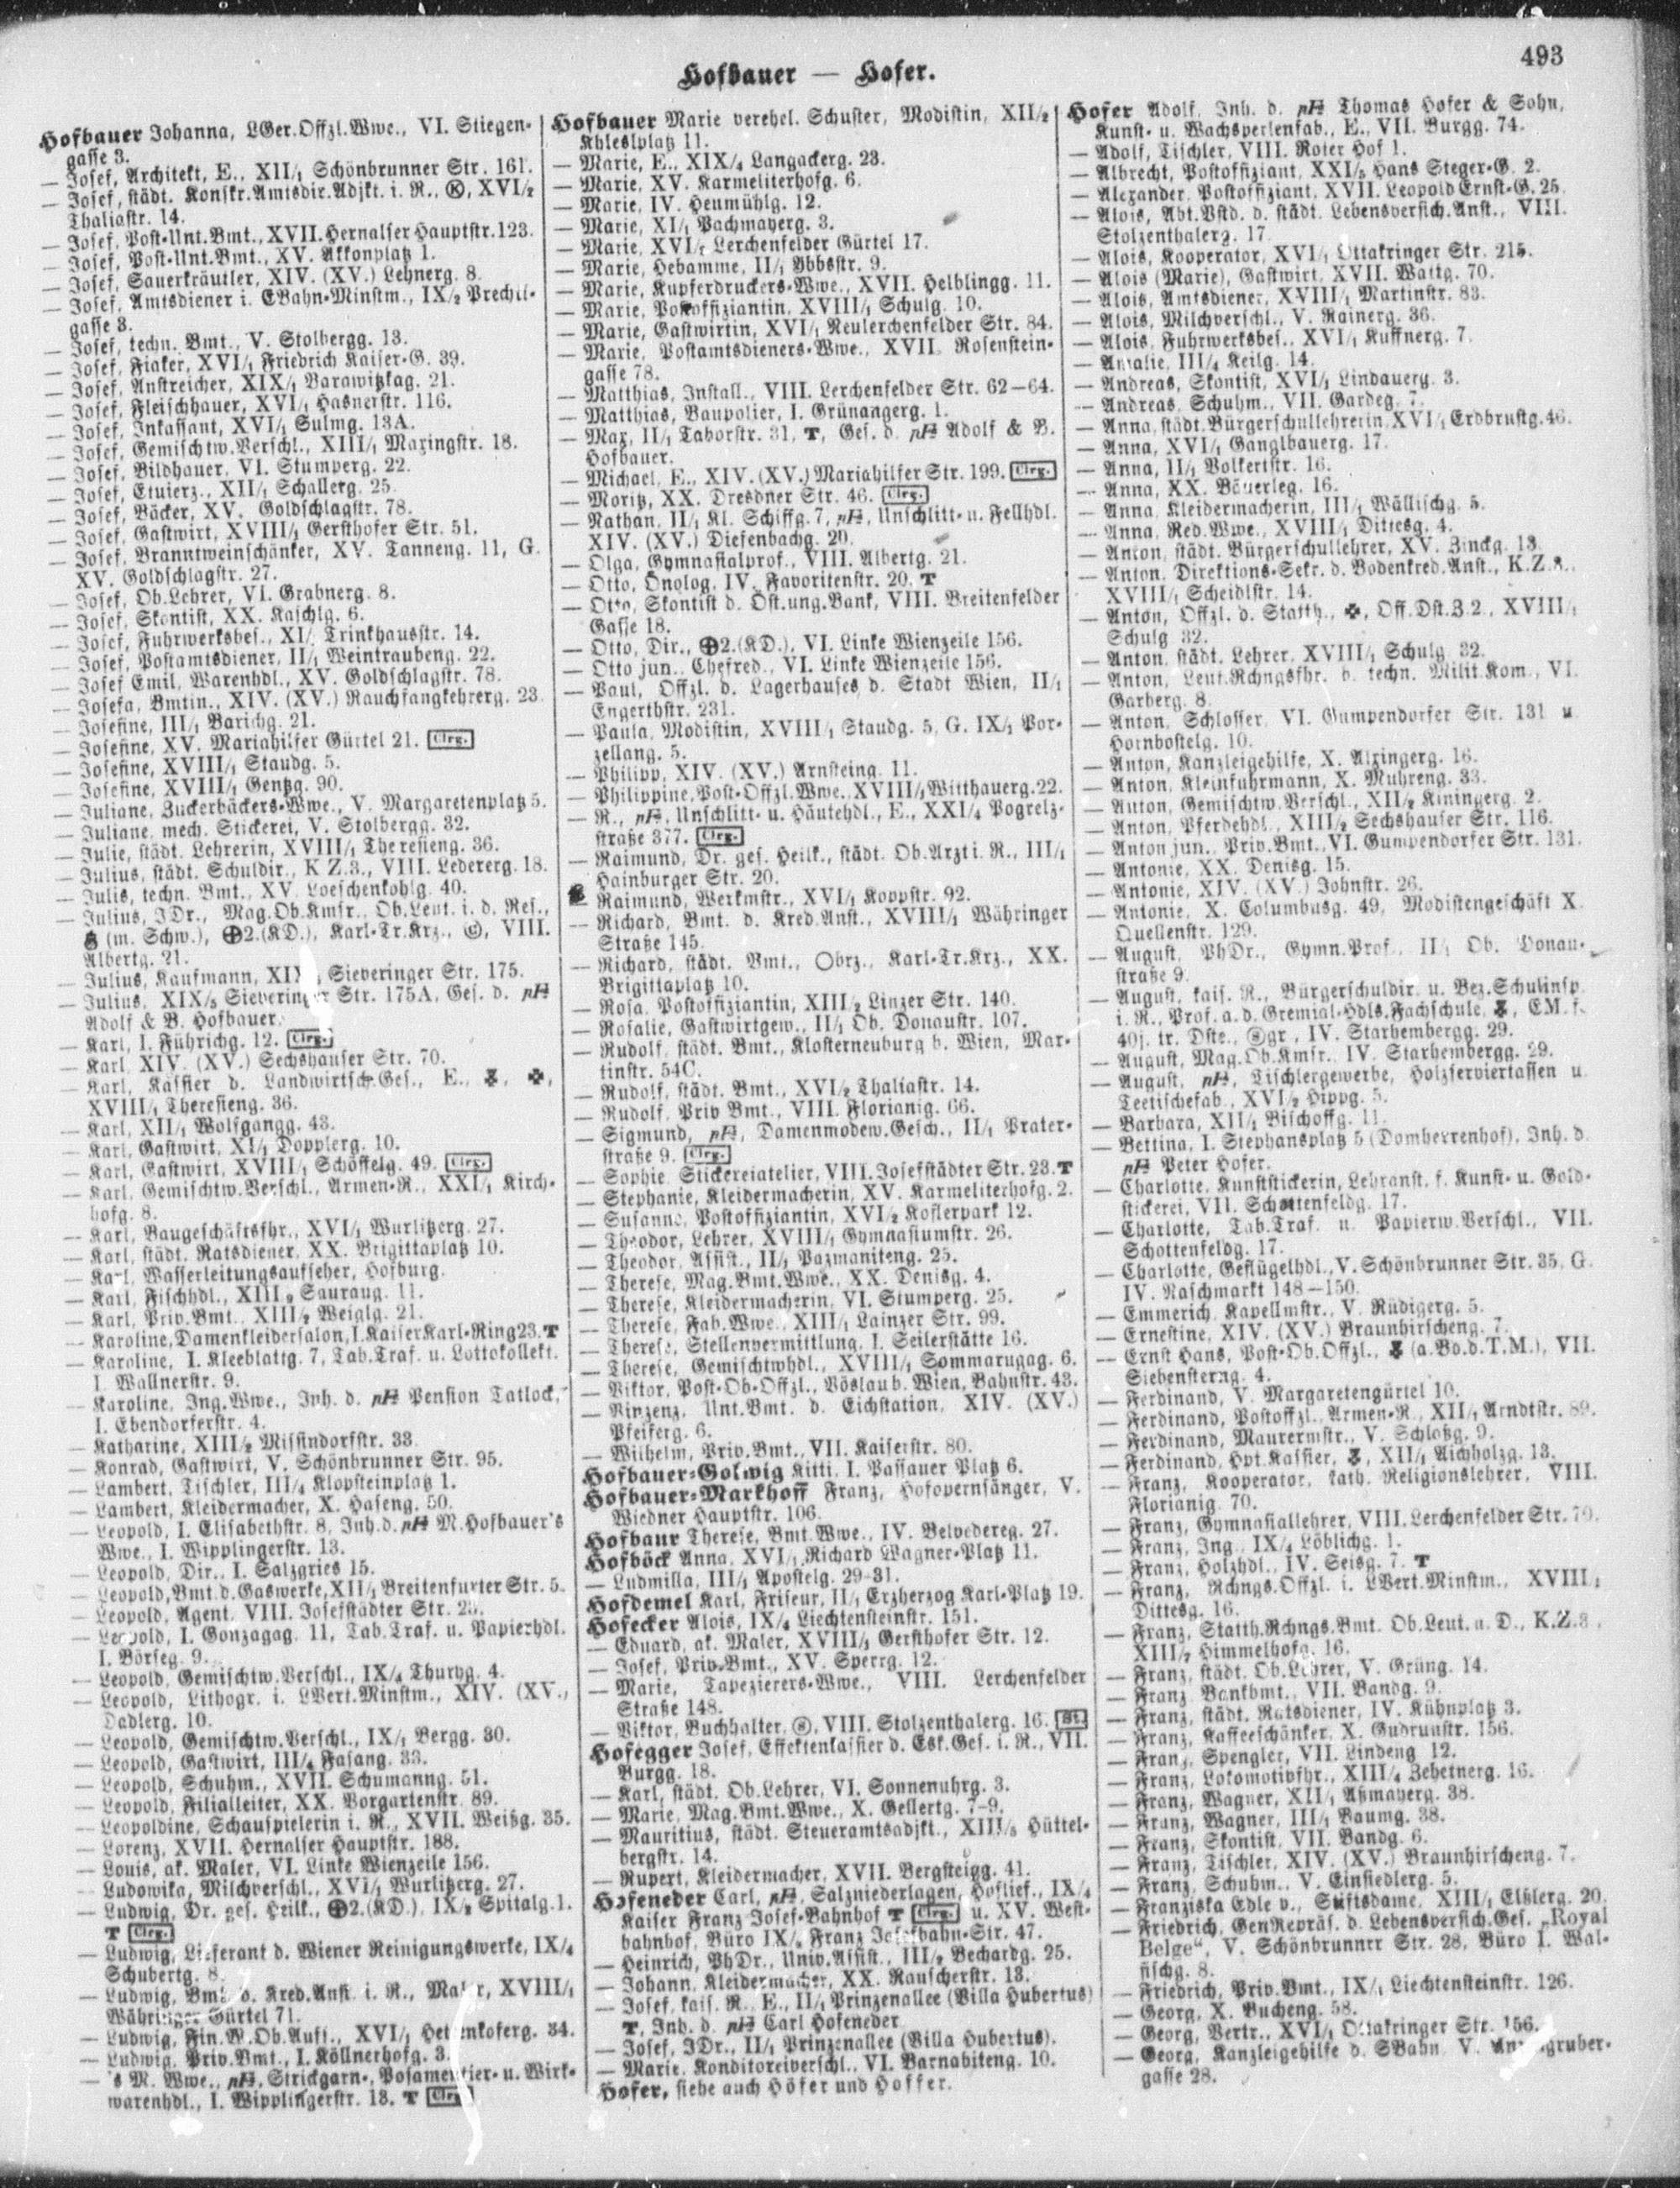 493
Hofbauer — Hofer.
Hofbauer Johanna, LGer.Offzl.Wwe., VI. Stiegen-
gasse 3.
— Josef, Architekt, E., XII/1 Schönbrunner Str. 161.
— Josef, städt. Konskr.Amtsdir.Adjkt. i. R., Ⓚ, XVI/2
Thaliastr. 14.
— Josef, Post-Unt.Bmt., XVII. Hernalser Hauptstr. 123.
— Josef, Post-Unt.Bmt., XV. Akkonplatz 1.
— Josef, Sauerkräutler, XIV. (XV.) Lehnerg. 8.
— Josef, Amtsdiener i. EBahn-Minstm., IX/2 Prechtl-
gasse 3.
— Josef, techn. Bmt., V. Stolbergg. 13.
— Josef, Fiaker, XVI/1 Friedrich Kaiser-G. 39.
— Josef, Anstreicher, XIX/1 Barawitzkag. 21.
— Josef, Fleischhauer, XVI/1 Hasnerstr. 116.
— Josef, Inkassant, XVI/1 Sulmg. 13A.
— Josef, Gemischtw.Verschl., XIII/1 Maxingstr. 18.
— Josef, Bildhauer, VI. Stumperg. 22.
— Josef, Etuierz., XII/1 Schallerg. 25.
— Josef, Bäcker, XV. Goldschlagstr. 78.
— Josef, Gastwirt, XVIII/1 Gersthofer Str. 51.
— Josef, Branntweinschänker, XV. Tanneng. 11, G.
XV. Goldschlagstr. 27.
— Josef, Ob.Lehrer, VI. Grabnerg. 8.
— Josef, Skontist, XX. Raschlg. 6.
— Josef, Fuhrwerksbes., XI/1 Trinkhausstr. 14.
— Josef, Postamtsdiener, II/1 Weintraubeng. 22.
— Josef Emil, Warenhdl., XV. Goldschlagstr. 78.
— Josefa, Bmtin., XIV. (XV.) Rauchfangkehrerg. 23.
— Josefine, III/1 Barichg. 21.
— Josefine, XV. Mariahilfer Gürtel 21. Clrg.
— Josefine, XVIII/1 Staudg. 5.
— Josefine, XVIII/1 Gentzg. 90.
— Juliane, Zuckerbäckers-Wwe., V. Margaretenplatz 5.
— Juliane, mech. Stickerei, V. Stolbergg. 32.
— Julie, städt. Lehrerin, XVIII/1 Theresieng. 36.
— Julius, städt. Schuldir., K.Z.3., VIII. Ledererg. 18.
— Julis, techn. Bmt., XV. Loeschenkohlg. 40.
— Julius, JDr., Mag.Ob.Kmsr., Ob.Leut. i. d. Res.,
(m. Schw.), ⊕2.(KD.), Karl-Tr.Krz., VIII.
Albertg. 21.
— Julius, Kaufmann, Sieveringer Str. 175.
— Julius, XIX/5 Sieveringer Str. 175A, Ges. d. pH
Adolf & B. Hofbauer.
— Karl, I. Führichg. 12. Clrg.
— Karl, XIV. (XV.) Sechshauser Str. 70.
— Karl, Kassier d. Landwirtsch.Ges., E.,
XVIII/1 Theresieng. 36.
— Karl, XII/1 Wolfgangg. 43.
— Karl, Gastwirt, XI/1 Dopplerg. 10.
— Karl, Gastwirt, XVIII/1 Schöffelg. 49. Clrg.
— Karl, Gemischtw.Verschl., Armen-R., XXI/1 Kirch-
hofg. 8.
— Karl, Baugeschäftsfhr., XVI/1 Wurlitzerg. 27.
— Karl, städt. Ratsdiener, XX. Brigittaplatz 10.
— Karl, Wasserleitungsaufseher, Hofburg.
— Karl, Fischhdl., XIII/9 Sauraug. 11.
— Karl, Priv.Bmt., XIII/2 Weiglg. 21.
— Karoline, Damenkleidersalon, I. Kaiser Karl-Ring 23. T
— Karoline, I. Kleeblattg. 7, Tab.Traf. u. Lottokollekt.
I. Wallnerstr. 9.
— Karoline, Ing.Wwe., Inh. d. pH Pension Tatlock,
I. Ebendorferstr. 4.
— Katharine, XIII/2 Missindorfstr. 33.
— Konrad, Gastwirt, V. Schönbrunner Str. 95.
— Lambert, Tischler, III/4 Klopsteinplatz 1.
— Lambert, Kleidermacher, X. Haseng. 50.
— Leopold, I. Elisabethstr. 8, Inh. d. pH M. Hofbauer's
Wwe., I. Wipplingerstr. 13.
— Leopold, Dir., I. Salzgries 15.
— Leopold, Bmt. d. Gaswerke, XII/1 Breitenfurter Str. 5.
— Leopold, Agent, VIII. Josefstädter Str.
— Leopold, I. Gonzagag. 11, Tab.Traf. u. Papierhdl.
I. Börseg. 9.
— Leopold, Gemischtw.Verschl., IX/4 Thuryg. 4.
— Leopold, Lithogr. i. LVert.Minstm., XIV. (XV.,
Dadlerg. 10.
— Leopold, Gemischtw.Verschl., IX/1 Bergg. 30.
— Leopold, Gastwirt, III/4 Fasang. 33.
— Leopold, Schuhm., XVII. Schumanng. 51.
— Leopold, Filialleiter, XX. Vorgartenstr. 89.
— Leopoldine, Schauspielerin i. R., XVII. Weißg. 35.
— Lorenz, XVII. Hernalser Hauptstr. 188.
— Louis, ak. Maler, VI. Linke Wienzeile 156.
— Ludowika, Milchverschl., XVI/1 Wurlitzerg. 27.
— Ludwig, Dr. ges. Heilk., ⊕2.(KD.), IX/2 Spitalg. 1.
T Clrg.
— Ludwig, Lieferant d. Wiener Reinigungswerke, IX/4
Schubertg. 8.
— Ludwig, Bmt. d. Kred.Anst. i. R., Maler, XVIII/1
Währinger Gürtel 71.
— Ludwig, Fin.W.Ob.Aufs., XVI/1 Hettenkoferg. 34.
— Ludwig, Priv.Bmt., I. Köllnerhofg. 3.
— 's M. Wwe., pH, Strickgarn-, Posamentier- u. Wirk-
warenhdl., I. Wipplingerstr. 13. T Clrg.
Hofbauer Marie verehel. Schuster, Modistin, XII/2
Khleslplatz 11.
— Marie, E., XIX/4 Langackerg. 23.
— Marie, XV. Karmeliterhofg. 6.
— Marie, IV. Heumühlg. 12.
— Marie, XI/1 Pachmayerg. 3.
— Marie, XVI/1 Lerchenfelder Gürtel 17.
— Marie, Hebamme, II/1 Ybbsstr. 9.
— Marie, Kupferdruckers-Wwe., XVII. Helblingg. 11.
— Marie, Postoffiziantin, XVIII/1 Schulg. 10.
— Marie, Gastwirtin, XVI/1 Neulerchenfelder Str. 84.
— Marie, Postamtsdieners-Wwe., XVII. Rosenstein-
gasse 78.
— Matthias, Install., VIII. Lerchenfelder Str. 62—64.
— Matthias, Baupolier, I. Grünangerg. 1.
— Max, II/1 Taborstr. 31, T, Ges. d. pH Adolf & B.
Hofbauer.
— Michael, E., XIV. (XV.) Mariahilfer Str. 199. Clrg.
— Moritz, XX. Dresdner Str. 46. Clrg.
— Nathan, II/1 Kl. Schiffg. 7, pH, Unschlitt- u. Fellhdl.
XIV. (XV.) Diefenbachg. 20.
— Olga, Gymnasialprof., VIII. Albertg. 21.
— Otto, Önolog, IV. Favoritenstr. 20. T
— Otto, Skontist d. Öst.ung.Bank, VIII. Breitenfelder
Gasse 18.
— Otto, Dir., ⊕2.(KD.), VI. Linke Wienzeile 156.
— Otto jun., Chefred., VI. Linke Wienzeile 156.
— Paul, Offzl. d. Lagerhauses d. Stadt Wien, II/1
Engerthstr. 231.
— Paula, Modistin, XVIII/1 Staudg. 5, G. IX/1 Por-
zellang. 5.
— Philipp, XIV. (XV.) Arnsteing. 11.
— Philippine, Post-Offzl.Wwe., XVIII/1 Witthauerg. 22.
— R., pH, Unschlitt- u. Häutehdl., E., XXI/4 Pogrelz-
straße 377. Clrg.
— Raimund, Dr. ges. Heilk., städt. Ob.Arzt i. R., III/1
Hainburger Str. 20.
— Raimund, Werkmstr., XVI/1 Koppstr. 92.
— Richard, Bmt. d. Kred.Anst., XVIII/1 Währinger
Straße 145.
— Richard, städt. Bmt., Obrz., Karl-Tr.Krz., XX.
Brigittaplatz 10.
— Rosa, Postoffiziantin, XIII/2 Linzer Str. 140.
— Rosalie, Gastwirtgew., II/1 Ob. Donaustr. 107.
— Rudolf, städt. Bmt., Klosterneuburg b. Wien, Mar-
tinstr. 54C.
— Rudolf, städt. Bmt., XVI/2 Thaliastr. 14.
— Rudolf, Priv.Bmt., VIII. Florianig. 66.
— Sigmund, pH, Damenmodew.Gesch., II/1 Prater-
straße 9. Clrg.
— Sophie, Stickereiatelier, VIII. Josefstädter Str. 23. T
— Stephanie, Kleidermacherin, XV. Karmeliterhofg. 2.
— Susanne, Postoffiziantin, XVI/2 Koflerpark 12.
— Theodor, Lehrer, XVIII/1 Gymnasiumstr. 26.
— Theodor, Assist., II/1 Pazmaniteng. 25.
— Therese, Mag.Bmt.Wwe., XX. Denisg. 4.
— Therese, Kleidermacherin, VI. Stumperg. 25.
— Therese, Fab.Wwe., XIII/1 Lainzer Str. 99.
— Therese, Stellenvermittlung, I. Seilerstätte 16.
— Therese, Gemischtwhdl., XVIII/1 Sommarugag. 6.
— Viktor, Post-Ob-Offzl., Vöslau b. Wien, Bahnstr. 43.
— Vinzenz, Unt.Bmt. d. Eichstation, XIV. (XV.)
Pfeiferg. 6.
— Wilhelm, Priv.Bmt., VII. Kaiserstr. 80.
Hofbauer-Golwig Kitti, I. Passauer Platz 6.
Hofbauer-Markhoff Franz, Hofopernsänger, V.
Wiedner Hauptstr. 106.
Hofbaur Therese, Bmt.Wwe., IV. Belvedereg. 27.
Hofböck Anna, XVI/1 Richard Wagner-Platz 11.
— Ludmilla, III/1 Apostelg. 29-31.
Hofdemel Karl, Friseur, II/1 Erzherzog Karl-Platz 19.
Hofecker Alois, IX/4 Liechtensteinstr. 151.
— Eduard, ak. Maler, XVIII/1 Gersthofer Str. 12.
— Josef, Priv.Bmt., XV. Sperrg. 12.
— Marie, Tapezierers-Wwe., VIII. Lerchenfelder
Straße 148.
— Viktor, Buchhalter, VIII. Stolzenthalerg. 16. St.
Hofegger Josef, Effektenkassier d. Esk.Ges. i. R., VII.
Burgg. 18.
— Karl, städt. Ob.Lehrer, VI. Sonnenuhrg. 3.
— Marie, Mag.Bmt.Wwe., X. Gellertg. 7-9.
— Mauritius, städt. Steueramtsadjkt., XIII/5 Hüttel-
bergstr. 14.
— Rupert, Kleidermacher, XVII. Bergsteigg. 41.
Hofeneder Carl, pH, Salzniederlagen, Hoflief., IX/4
Kaiser Franz Josef-Bahnhof T Clrg. u. XV. West-
bahnhof, Büro IX/4 Franz Josefbahn-Str. 47.
— Heinrich, PhDr., Univ.Assist., III/2 Bechardg. 25.
— Johann, Kleidermacher, XX. Rauscherstr. 13.
— Josef, kais. R., E., II/1 Prinzenallee (Villa Hubertus)
T, Inh. d. pH Carl Hofeneder.
— Josef, JDr., II/1 Prinzenallee (Villa Hubertus).
— Marie, Konditoreiverschl., VI. Barnabiteng. 10.
Hofer, siehe auch Höfer und Hoffer.
Hofer Adolf, Inh. d. pH Thomas Hofer & Sohn,
Kunst- u. Wachsperlenfab., E., VII. Burgg. 74.
— Adolf, Tischler, VIII. Roter Hof 1.
— Albrecht, Postoffiziant, XXI/5 Hans Steger-G. 2.
— Alexander, Postoffiziant, XVII. Leopold Ernst-G. 25.
— Alois, Abt.Vstd. d. städt. Lebensversich.Anst., VIII.
Stolzenthalerg. 17.
— Alois, Kooperator, XVI/1 Ottakringer Str. 215.
— Alois (Marie), Gastwirt, XVII. Wattg. 70.
— Alois, Amtsdiener, XVIII/1 Martinstr. 83.
— Alois, Milchverschl., V. Rainerg. 36.
— Alois, Fuhrwerksbes., XVI/1 Kuffnerg. 7.
— Amalie, III/4 Keilg. 14.
— Andreas, Skontist, XVI/1 Lindauerg. 3.
— Andreas, Schuhm., VII. Gardeg. 7.
— Anna, städt. Bürgerschullehrerin, XVI/1 Erdbrustg. 46.
— Anna, XVI/1 Ganglbauerg. 17.
— Anna, II/1 Volkertstr. 16.
— Anna, XX. Bäuerleg. 16.
— Anna, Kleidermacherin, III/1 Wällischg. 5.
— Anna, Red.Wwe., XVIII/1 Dittesg. 4.
— Anton, städt. Bürgerschullehrer, XV. Zinckg. 13.
— Anton, Direktions-Sekr. d. Bodenkred.Anst., K.Z.
XVIII/1 Scheidlstr. 14.
— Anton, Offzl. d. Statth., Off.Dst.Z.2., XVIII/1
Schulg. 32.
— Anton, städt. Lehrer, XVIII/1 Schulg. 32.
— Anton, Leut.Rchngsfhr. b. techn. Milit.Kom., VI.
Garberg. 8.
— Anton, Schlosser, VI. Gumpendorfer Str. 131 u.
Hornbostelg. 10.
— Anton, Kanzleigehilfe, X. Alxingerg. 16.
— Anton, Kleinfuhrmann, X. Muhreng. 33.
— Anton, Gemischtw.Verschl., XII/2 Kiningerg. 2.
— Anton, Pferdehdl., XIII/2 Sechshauser Str. 116.
— Anton jun., Priv.Bmt., VI. Gumpendorfer Str. 131.
— Antonie, XX. Denisg. 15.
— Antonie, XIV. (XV.) Johnstr. 26.
— Antonie, X. Columbusg. 49, Modistengeschäft X.
Quellenstr. 129.
— August, PhDr., Gymn.Prof., II/1 Ob. Donau-
straße 9.
— August, kais. R., Bürgerschuldir. u. Bez.Schulinsp.
i. R., Prof. a. d. Gremial-Hdls.Fachschule, EM. f.
40j. tr. Dste., IV. Starhembergg. 29.
— August, Mag.Ob.Kmsr., IV. Starhembergg. 29.
— August, pH, Tischlergewerbe, Holzserviertassen u.
Teetischefab., XVI/2 Hippg. 5.
— Barbara, XII/1 Bischoffg. 11.
— Bettina, I. Stephansplatz 5 (Domherrenhof), Inh. d.
pH Peter Hofer.
— Charlotte, Kunststickerin, Lehranst. f. Kunst- u. Gold-
stickerei, VII. Schottenfeldg. 17.
— Charlotte, Tab.Traf. u. Papierw.Verschl., VII.
Schottenfeldg. 17.
— Charlotte, Geflügelhdl., V. Schönbrunner Str. 35, G.
IV. Naschmarkt 148—150.
— Emmerich, Kapellmstr., V. Rüdigerg. 5.
— Ernestine, XIV. (XV.) Braunhirscheng. 7.
— Ernst Hans, Post-Ob.Offzl., (a.Bo.d.T.M.), VII.
Siebensterng. 4.
— Ferdinand, V. Margaretengürtel 10.
— Ferdinand, Postoffzl., Armen-R., XII/1 Arndtstr. 89.
— Ferdinand, Maurermstr., V. Schloßg. 9.
— Ferdinand, Hpt.Kassier, XII/1 Aichholzg. 13.
— Franz, Kooperator, kath. Religionslehrer, VIII.
Florianig. 70.
— Franz, Gymnasiallehrer, VIII. Lerchenfelder Str. 70.
— Franz, Ing., IX/4 Löblichg. 1.
— Franz, Holzhdl., IV. Seisg. 7. T
— Franz, Rchngs.Offzl. i. LVert.Minstm., XVIII/1
Dittesg. 16.
— Franz, Statth.Rchngs.Bmt. Ob.Leut. a. D., K.Z.3.,
XIII/2 Himmelhofg. 16.
— Franz, städt. Ob.Lehrer, V. Grüng. 14.
— Franz, Bankbmt., VII. Bandg. 9.
— Franz, städt. Ratsdiener, IV. Kühnplatz 3.
— Franz, Kaffeeschänker, X. Gudrunstr. 156.
— Franz, Spengler, VII. Lindeng. 12.
— Franz, Lokomotivfhr., XIII/4 Zehetnerg. 16.
— Franz, Wagner, XII/1 Aßmayerg. 38.
— Franz, Wagner, III/1 Baumg. 38.
— Franz, Skontist, VII. Bandg. 6.
— Franz, Tischler, XIV. (XV.) Braunhirscheng. 7.
— Franz, Schuhm., V. Einsiedlerg. 5.
— Franziska Edle v., Stiftsdame, XIII/1 Elßlerg. 20.
— Friedrich, GenRepräs. d. Lebensversich.Ges. „Royal
Belge“, V. Schönbrunner Str. 28, Büro I. Wal-
fischg. 8.
— Friedrich, Priv.Bmt., IX/1 Liechtensteinstr. 126.
— Georg, X. Bucheng. 58.
— Georg, Vertr., XVI/1 Ottakringer Str. 156.
— Georg, Kanzleigehilfe d. SBahn, V. Anzengruber-
gasse 28.